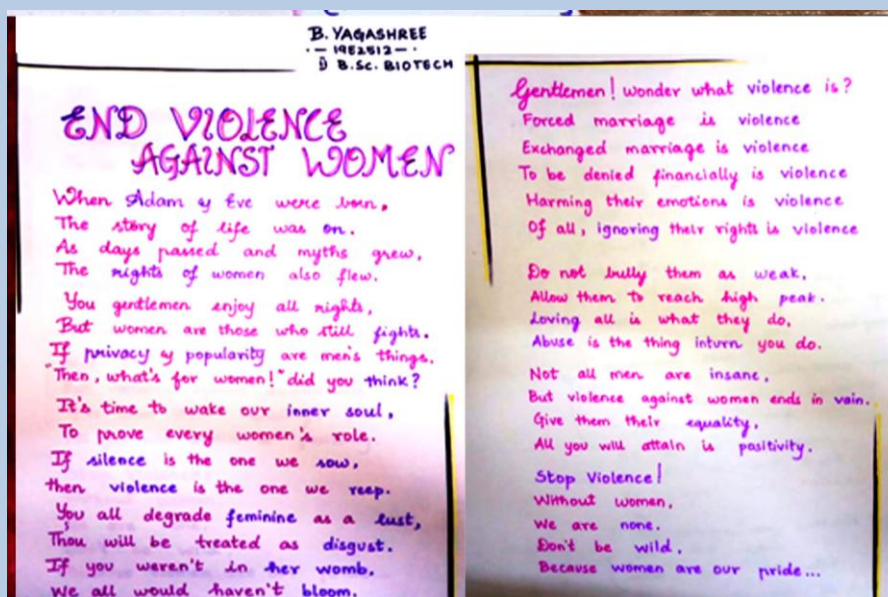 B. YAGASHREE
19E2512
B.Sc. BIOTECH
END VIOLENCE
AGAINST WOMEN
When Adam & Eve were born,
The story of life was on.
As days passed and myths grew,
The rights of women also flew.
You gentlemen enjoy all rights,
But women are those who still fights.
If privacy & popularity are men's things,
"Then, what's for women!" did you think?
It's time to wake our inner soul,
To prove every women's role.
If silence is the one we sow,
then violence is the one we reep.
You all degrade feminine as a lust,
Thou will be treated as disgust.
If you weren't in her womb,
We all would haven't bloom.
Gentlemen! wonder what violence is?
Forced marriage is violence
Exchanged marriage is violence
To be denied financially is violence
Harming their emotions is violence
Of all, ignoring their rights is violence
Do not bully them as weak,
Allow them to reach high peak.
Loving all is what they do,
Abuse is the thing inturn you do.
Not all men are insane,
But violence against women ends in vain.
Give them their equality,
All you will attain is positivity.
Stop Violence!
Without women,
We are none.
Don't be wild,
Because women are our pride...